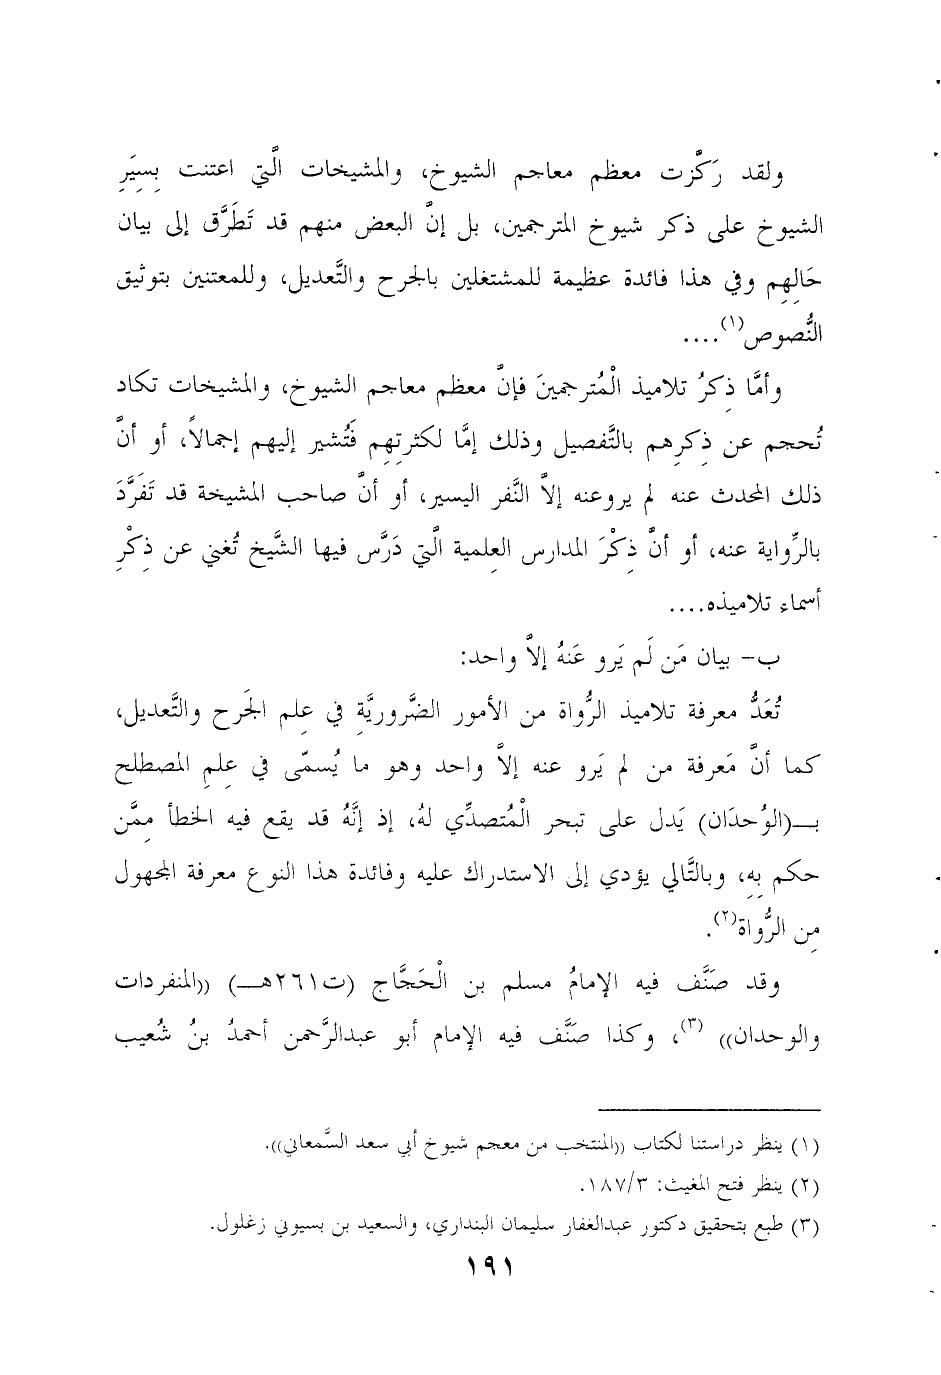 ولقد رَكَّزت معظم معاجم الشيوخ، والمشيخات الَّتي اعتنت بِسِيَرِ
الشيوخ على ذكر شيوخ المترجمين، بل إنَّ البعض منهم قد تَطَرَّق إلى بيان
حَالِهِم وفي هذا فائدة عظيمة للمشتغلين بالجرح والتَّعديل، وللمعتنين بتوثيق
النُّصوص(١)....
وأمَّا ذِكرُ تلاميذ الْمُترجمينَ فإنَّ معظم معاجم الشيوخ، والمشيخات تكاد
تُحجم عن ذِكرِهم بالتَّفصيل وذلك إمَّا لكثرتِهِم فَتُشير إليهم إجمالاً، أو أنَّ
ذلك المحدث عنه لم يروعنه إلاَّ النَّفر اليسير، أو أنَّ صاحب المشيخة قد تَفَرَّدَ
بالرِّواية عنه، أو أنَّ ذِكْرَ المدارس العِلمية الَّتي دَرَّس فيها الشَّيخ تُغني عن ذِكْرِ
أسماء تلاميذه....
ب- بيان مَن لَم يَرو عَنهُ إلاَّ واحد:
تُعَدُّ معرفة تلاميذ الرُّواة من الأمور الضَّروريَّةِ في عِلم الجَرح والتَّعديل،
كما أنَّ مَعرفة من لم يَرو عنه إلاَّ واحد وهو ما يُسمّى في عِلمِ المصطلح
بــ(الوُحدَان) يَدل على تبحر الْمُتصدِّي لهُ، إذ إنَّهُ قد يقع فيه الخطأ مِمَّن
حكم بِهِ، وبالتَّالي يؤدي إلى الاستدراك عليه وفائدة هذا النوع معرفة المجهول
مِن الرُّواة(٢).
وقد صَنَّف فيه الإمامُ مسلم بن الْحَجَّاج (ت٢٦١هــ) ((المنفردات
والوحدان)) (٣)، وكذا صَنَّف فيه الإمام أبو عبدالرَّحمن أحمدُ بنُ شُعيب
(١) ينظر دراستنا لكتاب ((المنتخب من معجم شيوخ أبي سعد السَّمعاني)).
(٢) ينظر فتح المغيث: ١٨٧/٣.
(٣) طبع بتحقيق دكتور عبدالغفار سليمان البنداري، والسعيد بن بسيوني زغلول.
١٩١